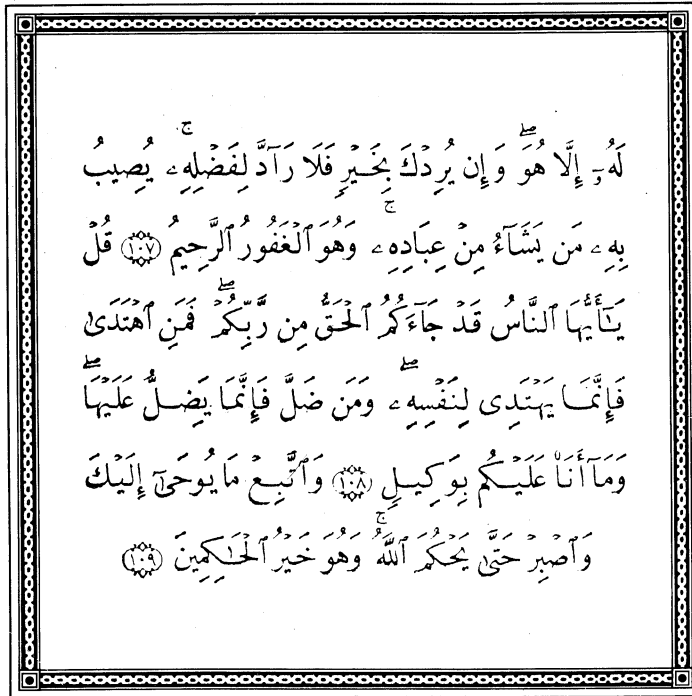 لَهُۥٓ إِلَّا هُوَۖ وَإِن يُرِدْكَ بِخَيْرٍ فَلَا رَآدَّ لِفَضْلِهِۦۚ يُصِيبُ
بِهِۦ مَن يَشَآءُ مِنْ عِبَادِهِۦۚ وَهُوَ ٱلْغَفُورُ ٱلرَّحِيمُ ١٠٧ قُلْ
يَٰٓأَيُّهَا ٱلنَّاسُ قَدْ جَآءَكُمُ ٱلْحَقُّ مِن رَّبِّكُمْۖ فَمَنِ ٱهْتَدَىٰ
فَإِنَّمَا يَهْتَدِى لِنَفْسِهِۦۖ وَمَن ضَلَّ فَإِنَّمَا يَضِلُّ عَلَيْهَاۖ
وَمَآ أَنَا۠ عَلَيْكُم بِوَكِيلٍ ١٠٨ وَٱتَّبِعْ مَا يُوحَىٰٓ إِلَيْكَ
وَٱصْبِرْ حَتَّىٰ يَحْكُمَ ٱللَّهُۚ وَهُوَ خَيْرُ ٱلْحَٰكِمِينَ ١٠٩